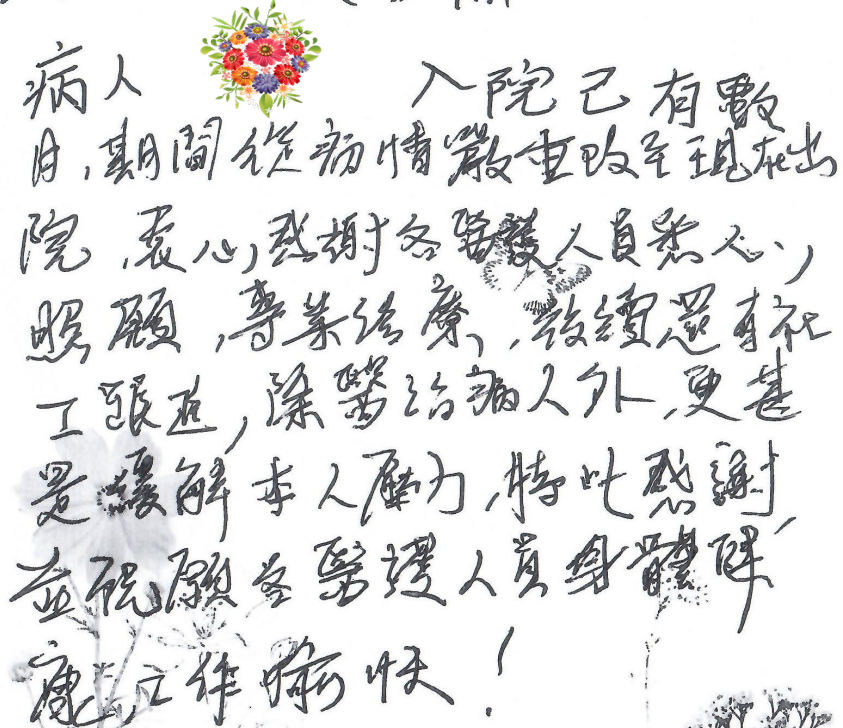 病人 入院已有數
月,期間從病情嚴重改至現在出
院,衷心感謝各醫護人員悉心
照顧,專業治療,後續還有社
工跟進,除醫治病人外,更甚
是緩解本人壓力,特此感謝,
並祝願各醫護人員身體健
康,工作愉快!